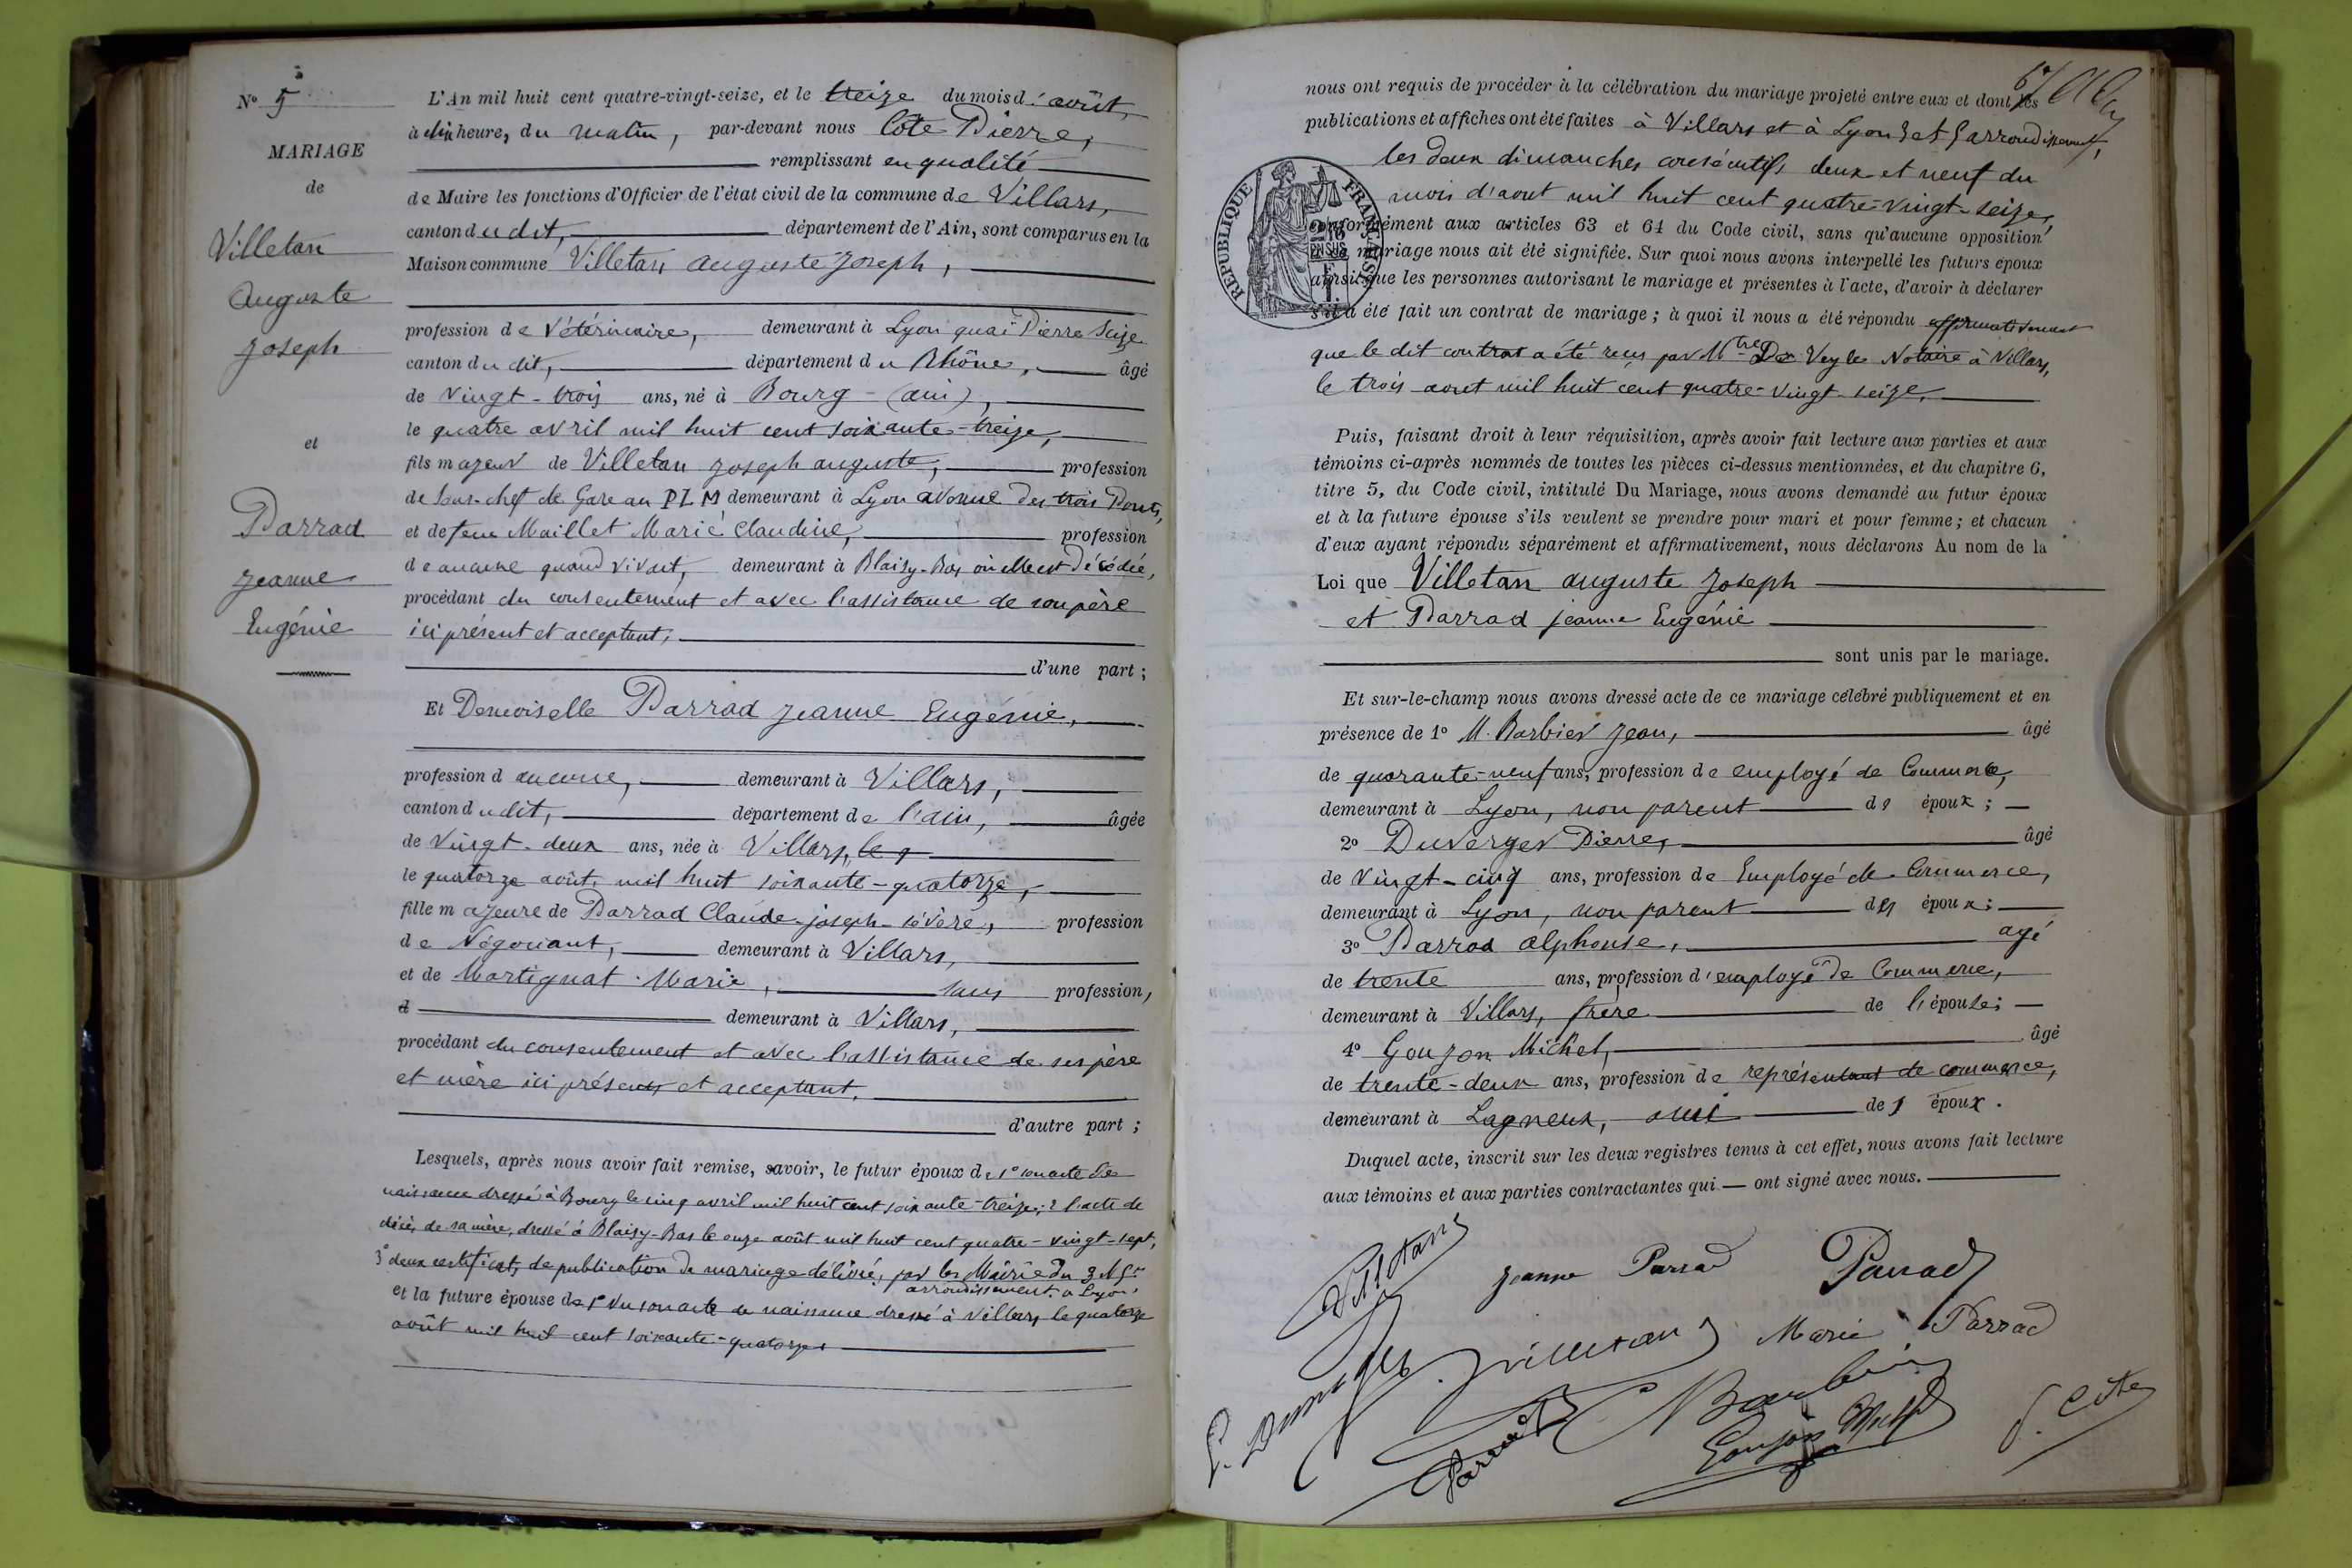 N° 5
MARIAGE
de
Villetan
Auguste
Joseph
et
Parrad
Jeanne
Eugénie
L'An mil huit cent quatre-vingt-seize, et le treize du mois d'août,
à dix heures, du matin, par-devant nous Côte Pierre,
remplissant en qualité
de Maire les fonctions d'Officier de l'état civil de la commune de Villars,
canton du dit, département de l'Ain, sont comparus en la
Maison commune Villetan Auguste Joseph,
profession de Vétérinaire, demeurant à Lyon quai Pierre Scize
canton du dit, département du Rhône, âgé
de vingt-trois ans, né à Bourg (ain),
le quatre avril mil huit cent soixante-treize,
fils majeur de Villetan Joseph auguste, profession
de sous-chef de Gare au PLM demeurant à Lyon avenue des trois Ponts,
et de feue Maillet Marie Claudine, profession
de aucune quand vivait, demeurant à Blaisy-Bas où elle est décédée,
procédant du consentement et avec l'assistance de son père
ici présent et acceptant,
d'une part ;
Et Demoiselle Parrad Jeanne Eugénie,
profession d aucune, demeurant à Villars,
canton du dit, département de l'ain, âgée
de vingt-deux ans, née à Villars, le
le quatorze août mil huit soixante-quatorze,
fille majeure de Parrad Claude-joseph-sévère, profession
de Négociant, demeurant à Villars,
et de Martignat Marie, sans profession,
d demeurant à Villars,
procédant du consentement et avec l'assistance de ses père
et mère ici présents et acceptant.
d'autre part ;
Lesquels, après nous avoir fait remise, savoir, le futur époux de 1° son acte de
naissance dressé à Bourg le cinq avril mil huit cent soixante-treize; 2 l'acte de
décès de sa mère, dressé à Blaisy-Bas le onze août mil huit cent quatre-vingt-sept,
3° deux certificats de publication de mariage délivrés par les Mairie du 3 et 5me
arrondissement à Lyon,
et la future épouse de 1° du son acte de naissance dressé à Villars le quatorze
août mil huit cent soixante-quatorze
67
nous ont requis de procéder à la célébration du mariage projeté entre eux et dont les
publications et affiches ont été faites à Villars et à Lyon 3 et 5 arrondissement,
les deux dimanches consécutifs deux et neuf du
mois d'aout mil huit cent quatre-vingt-seize,
RÉPUBLIQUE FRANÇAISE
conformément aux articles 63 et 64 du Code civil, sans qu'aucune opposition
à ce mariage nous ait été signifiée. Sur quoi nous avons interpellé les futurs époux
ainsi que les personnes autorisant le mariage et présentes à l'acte, d'avoir à déclarer
s'il a été fait un contrat de mariage ; à quoi il nous a été répondu affirmativement
que le dit contrat a été reçu par Mtre De Veyle Notaire à Villars,
le trois aout mil huit cent quatre-vingt-seize.
Puis, faisant droit à leur réquisition, après avoir fait lecture aux parties et aux
témoins ci-après nommés de toutes les pièces ci-dessus mentionnées, et du chapitre 6,
titre 5, du Code civil, intitulé Du Mariage, nous avons demandé au futur époux
et à la future épouse s'ils veulent se prendre pour mari et pour femme ; et chacun
d'eux ayant répondu séparément et affirmativement, nous déclarons Au nom de la
Loi que Villetan auguste Joseph
et Parrad jeanne Eugénie
sont unis par le mariage.
Et sur-le-champ nous avons dressé acte de ce mariage célébré publiquement et en
présence de 1° M. Barbier Jean, âgé
de quarante-neuf ans, profession de employé de Commerce,
demeurant à Lyon, non parent des époux ;
2° Duverger Pierre, âgé
de vingt-cinq ans, profession de Employé de Commerce,
demeurant à Lyon, non parent des époux ;
3° Parrad alphonse, agé
de trente ans, profession d'employé de Commerce,
demeurant à Villars, frère de l'épouse ;
4° Goujon Michel, âgé
de trente-deux ans, profession de représentant de commerce,
demeurant à Lagneux, ami des époux.
Duquel acte, inscrit sur les deux registres tenus à cet effet, nous avons fait lecture
aux témoins et aux parties contractantes qui ont signé avec nous.
Villetan
Jeanne Parrad
Parrad
Villetan
Marie Parrad
Barbier
Goujon
P. Côte